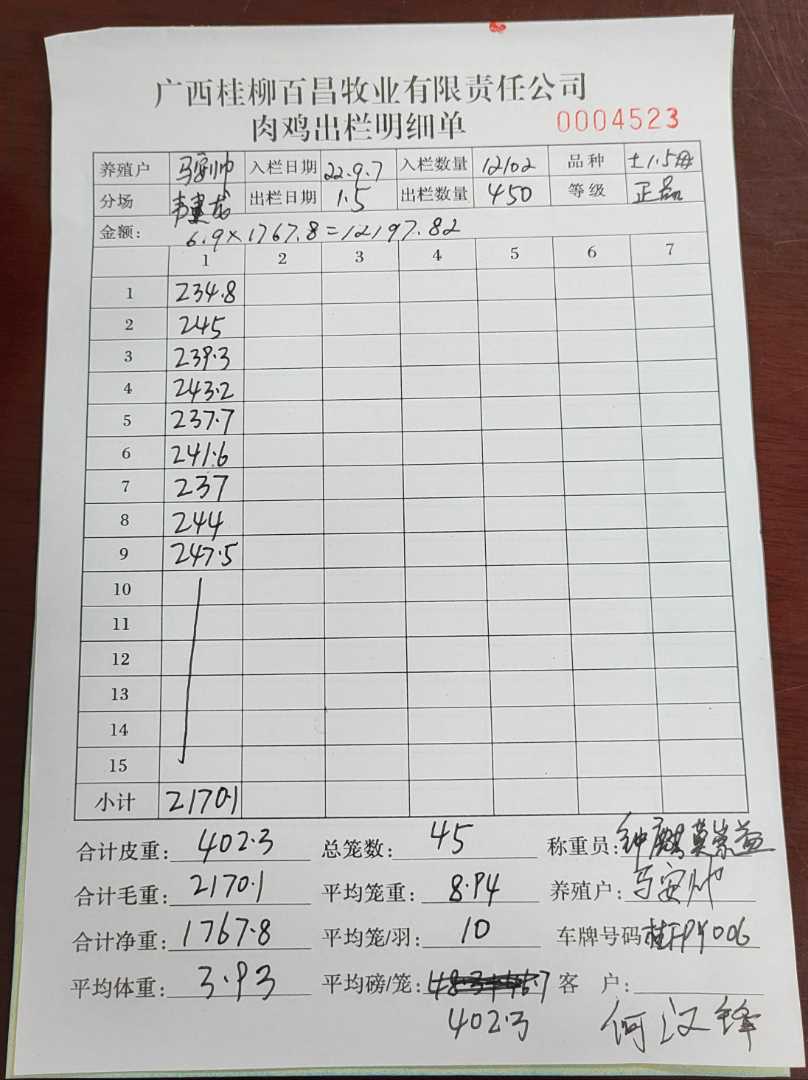 广西桂柳百昌牧业有限责任公司
肉鸡出栏明细单 0004523
养殖户 马安帅 入栏日期 22.9.7 入栏数量 12102 品种 土1.5母
分场 韦建龙 出栏日期 1.5 出栏数量 450 等级 正品
金额: 6.9×1767.8=12197.82
1 2 3 4 5 6 7
1 234.8
2 245
3 239.3
4 243.2
5 237.7
6 241.6
7 237
8 244
9 247.5
10
11
12
13
14
15
小计 2170.1
合计皮重: 402.3 总笼数: 45 称重员: 钟麒 莫崇益
合计毛重: 2170.1 平均笼重: 8.94 养殖户: 马安帅
合计净重: 1767.8 平均笼/羽: 10 车牌号码
平均体重: 3.93 平均磅/笼: 客 户:
402.3 何汉锋